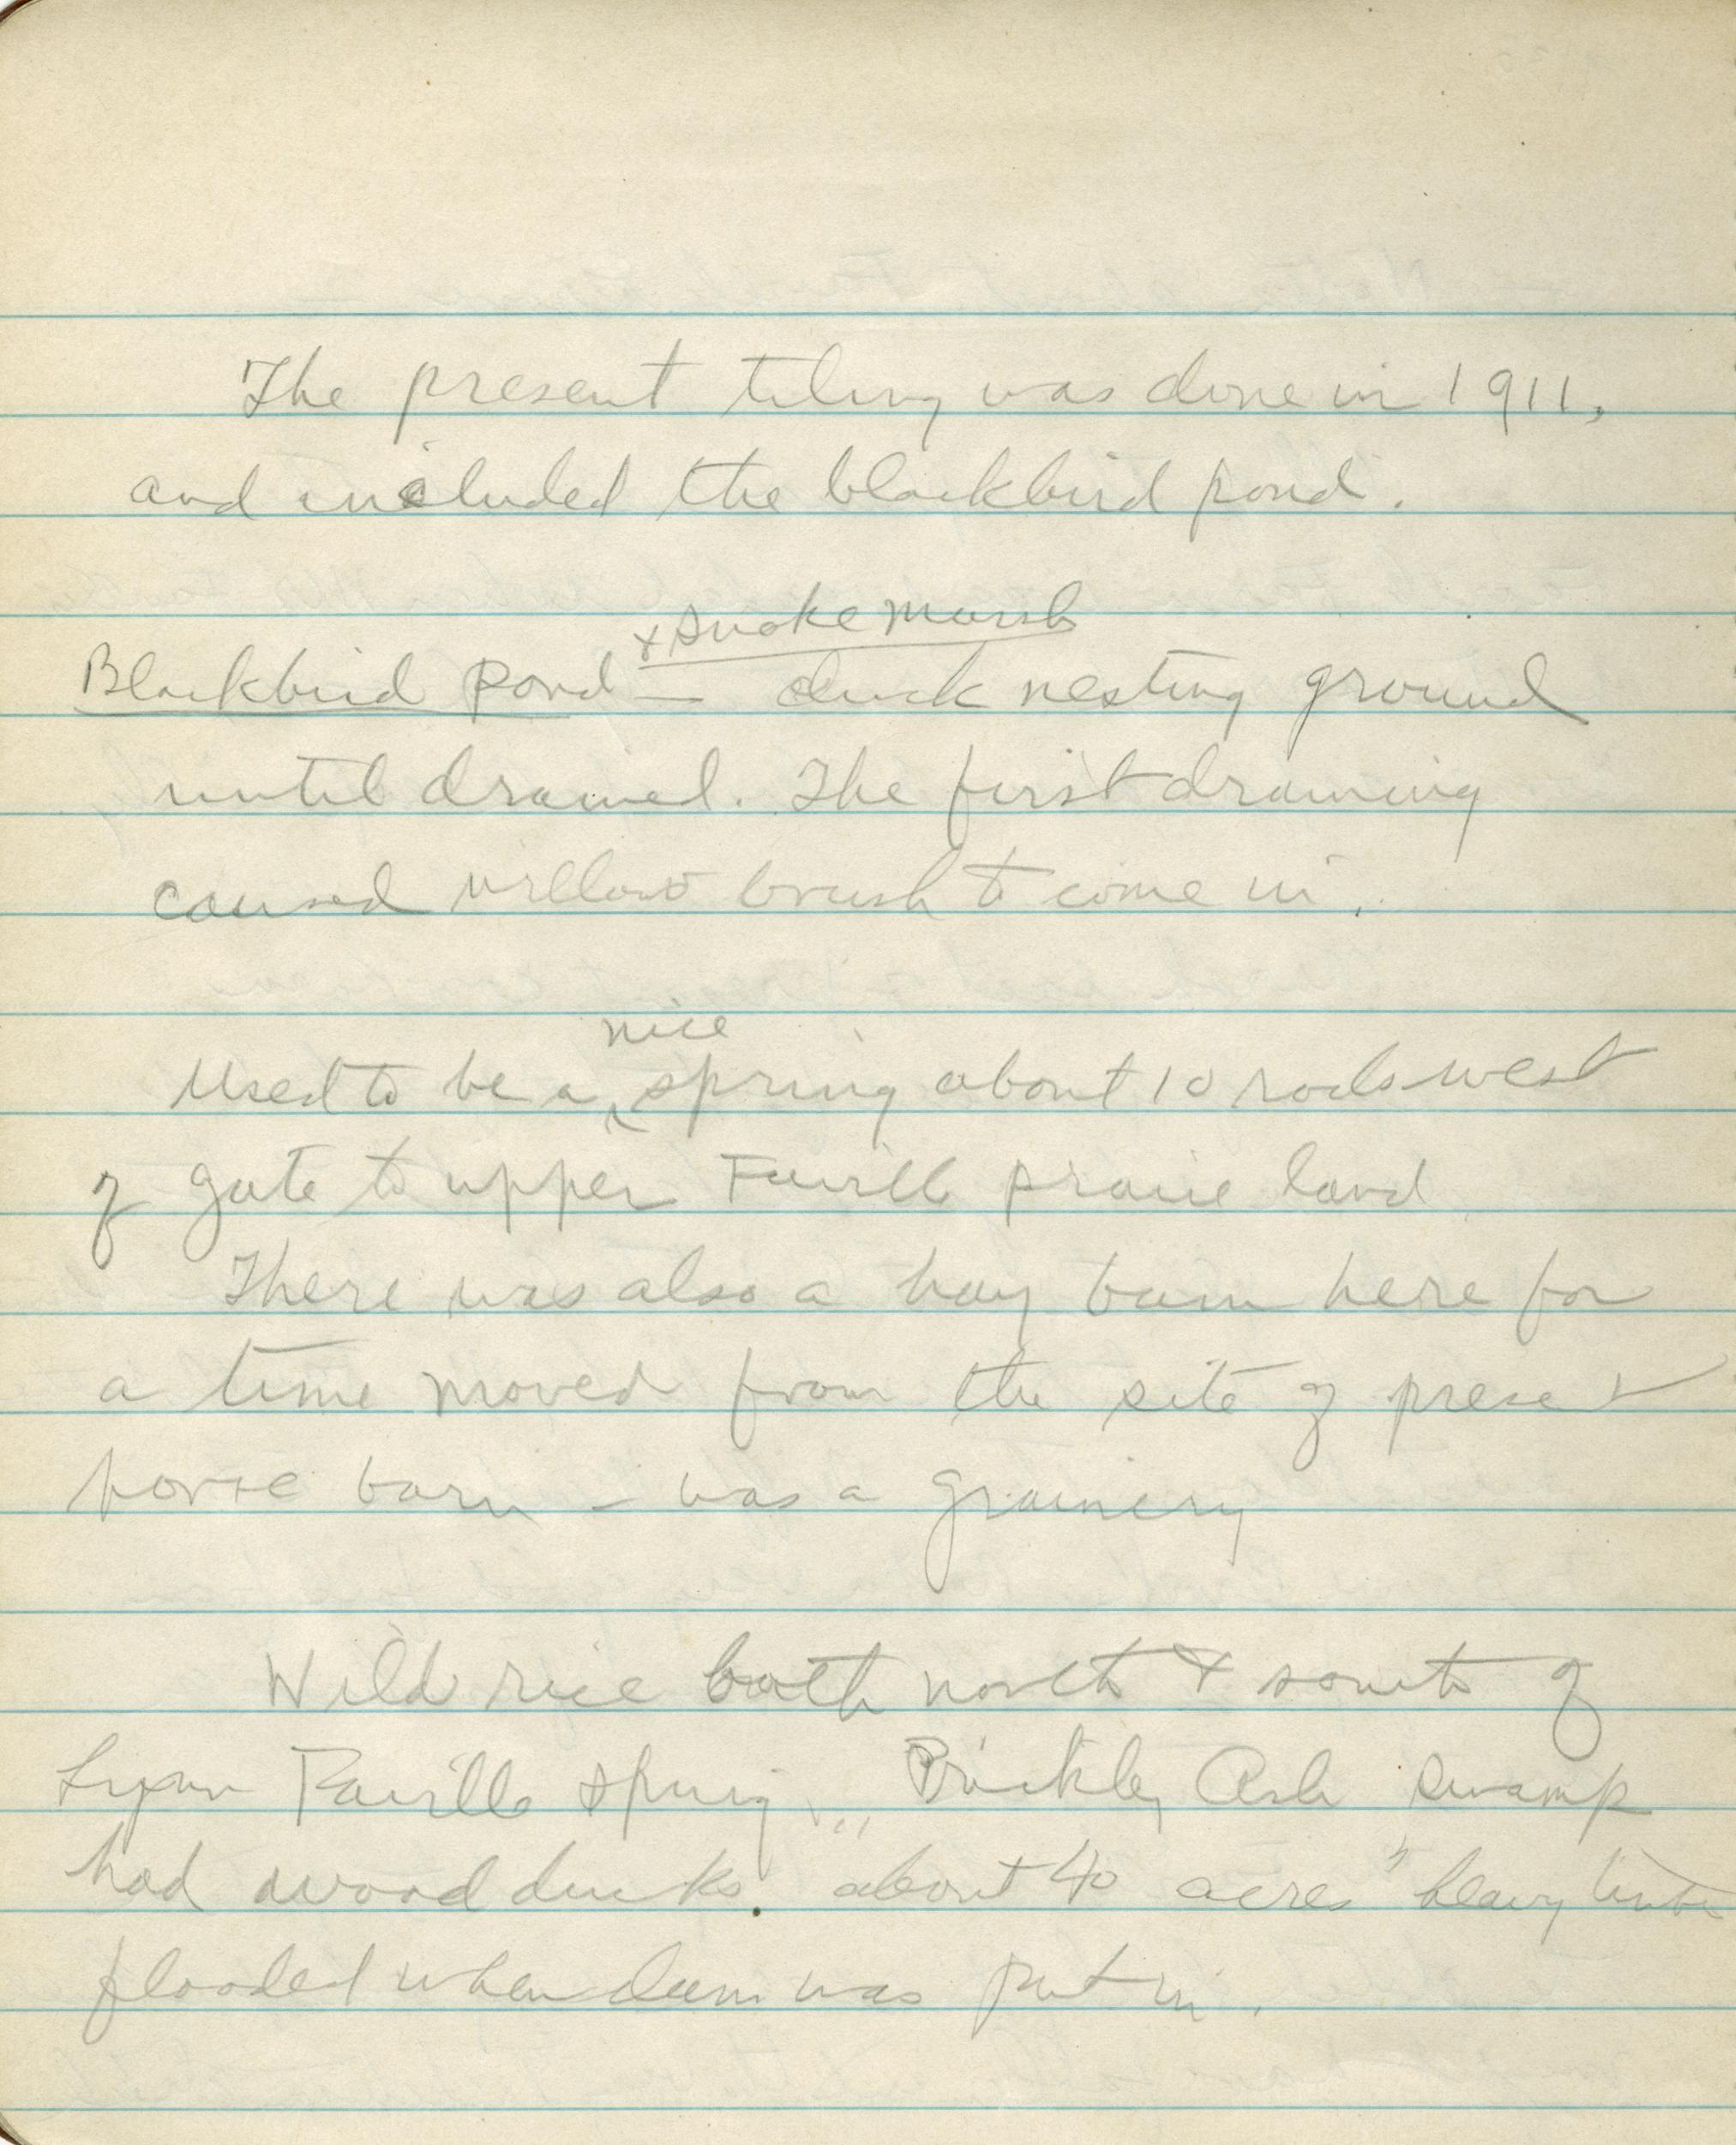 The present tiling was done in 1911,
and included the blackbird pond.
+ Snake Marsh
Blackbird Pond — duck nesting ground
until drained. The first draining
caused willow brush to come in.
nice
Used to be a spring about 10 rods west
of gate to upper Faville prairie land
There was also a hay barn here for
a time moved from the site of present
horse barn - was a grainery
Wild rice both north & south of
Faville spring. "Prickly Ash Swamp
had wood ducks. about 40 acres" heavy timber
flooded when dam was put in.